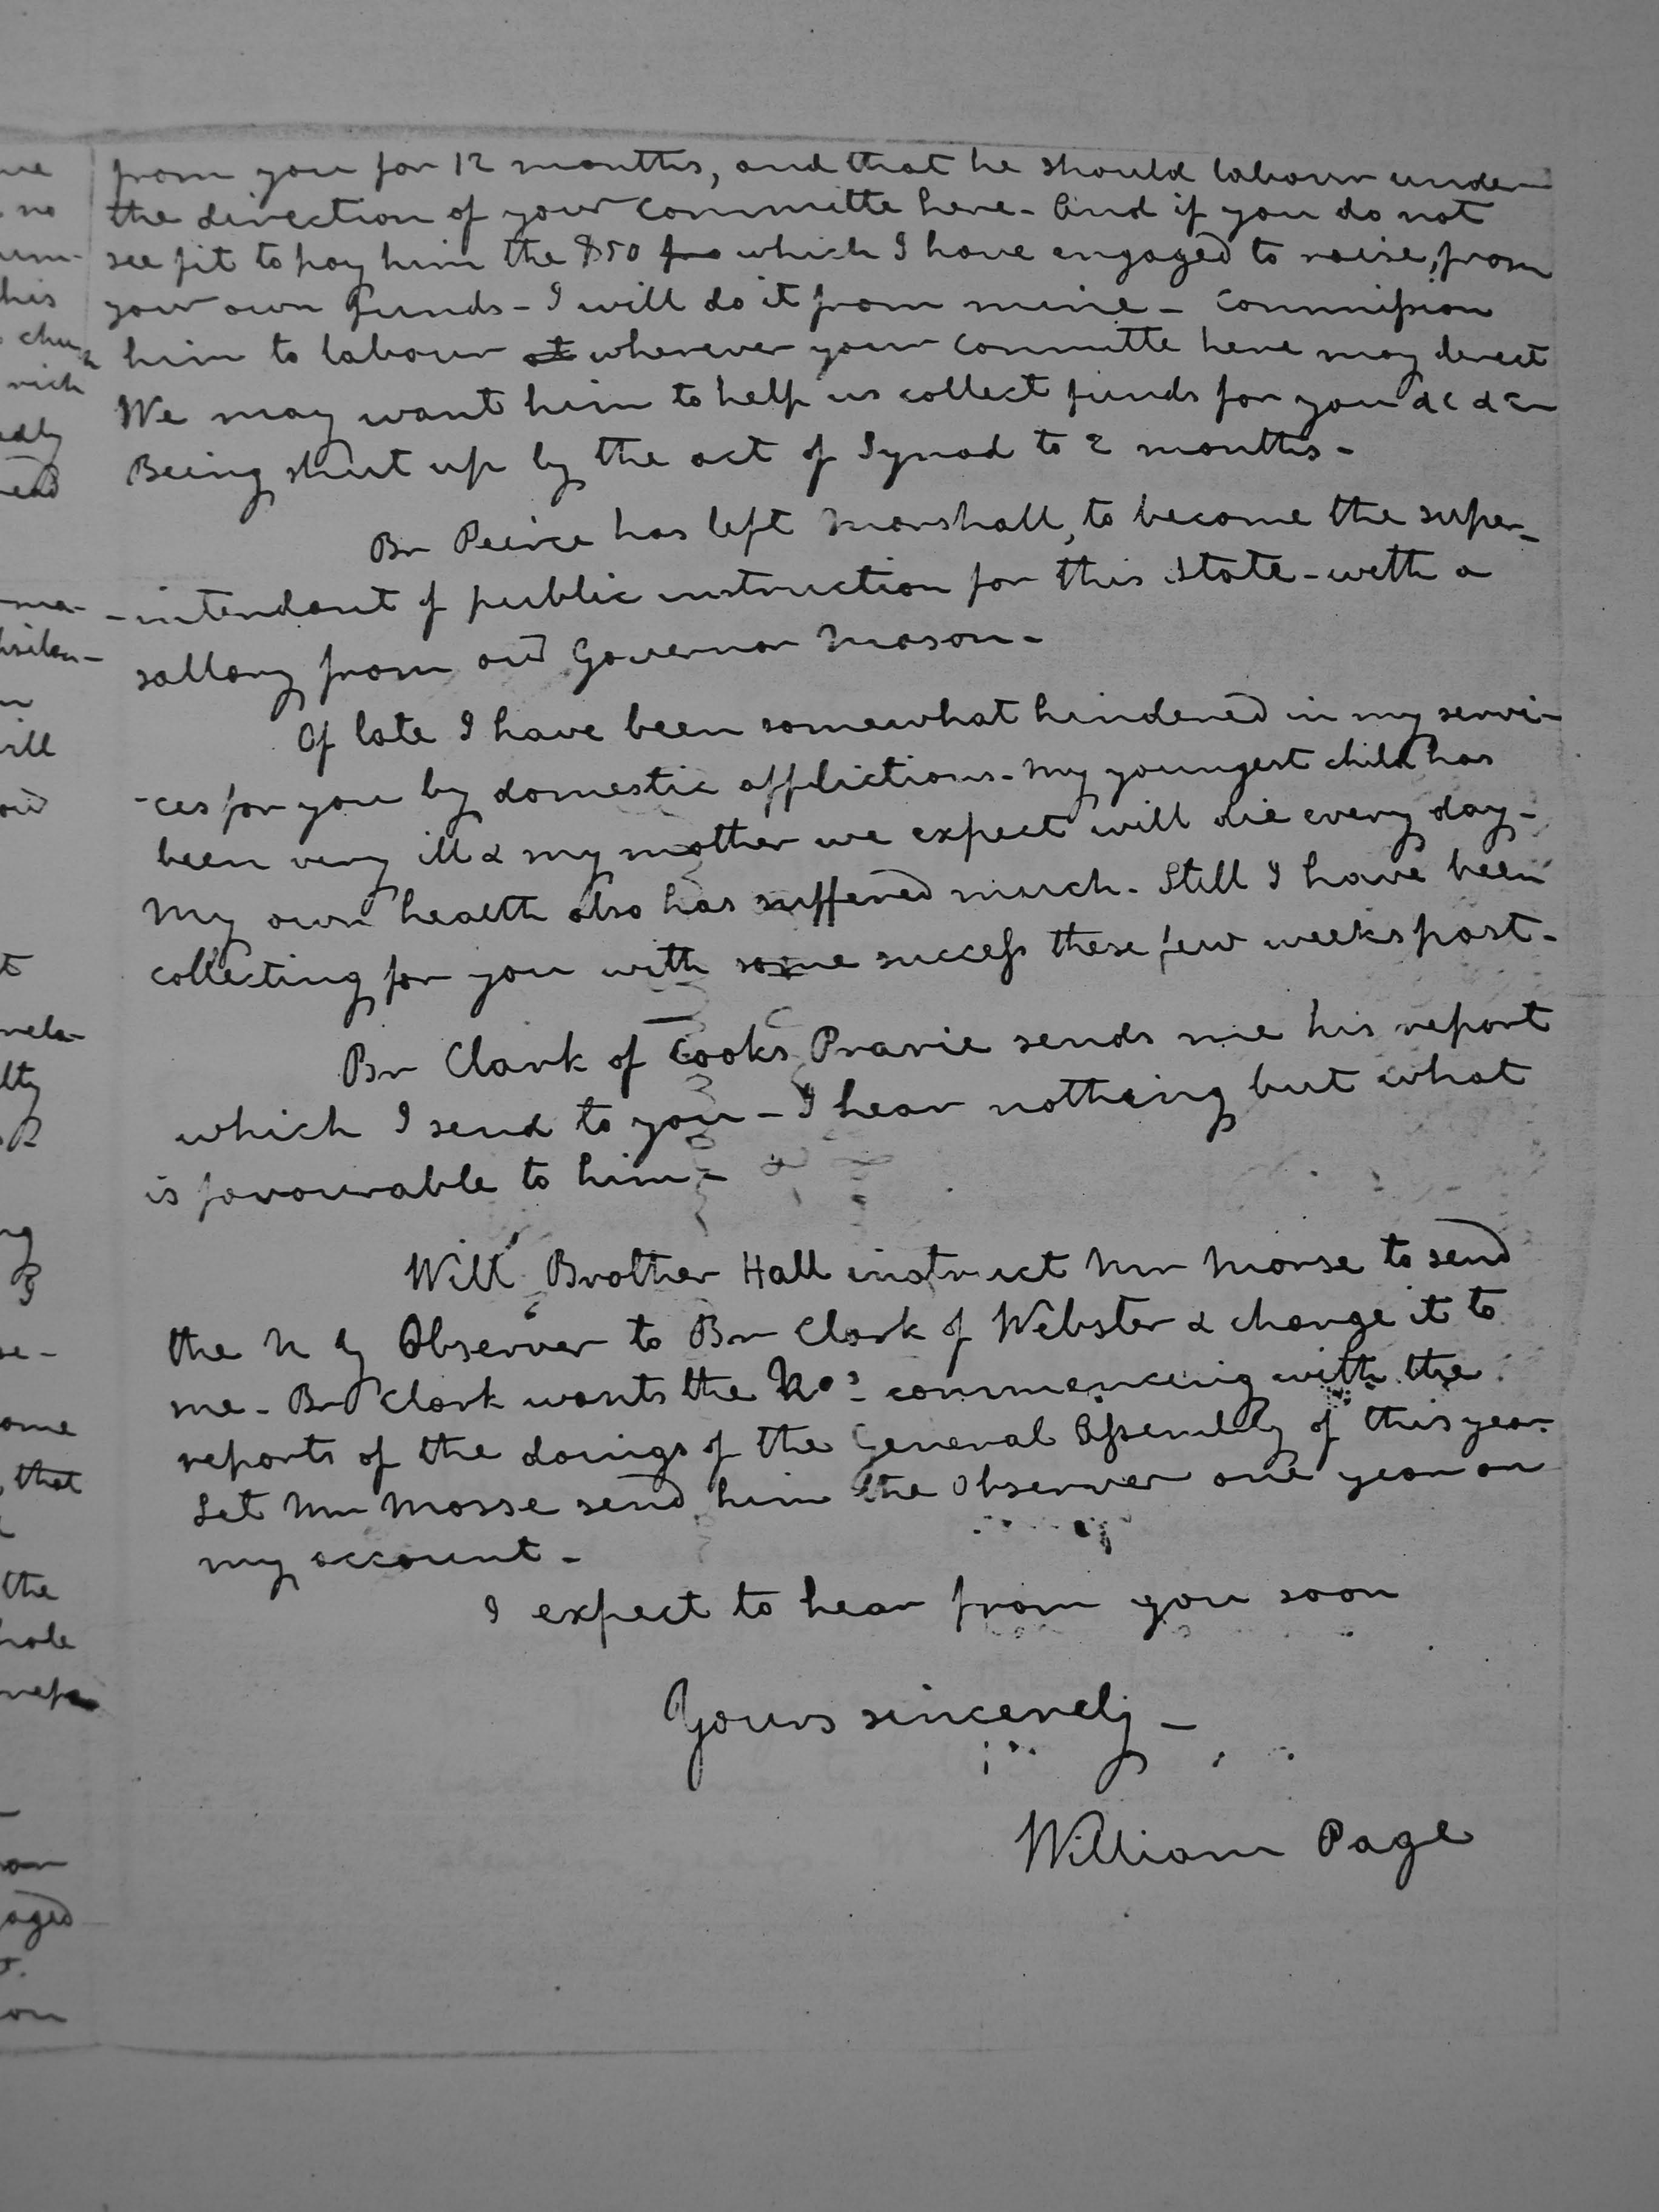 from you for 12 months, and that he should labour under
the direction of your committe here - And if you do not
see fit to pay him the $50 fro which I have engaged to raise, from
your own funds - I will do it from mine - Commission
him to labour at wherever your committe here may direct
We may want him to help us collect funds for you &c &c
Being shut up by the act of Synod to 2 months -
Br Peirce has left Marshall, to become the super-
-intendant of public instruction for this State - with a
sallary from our Governor Mason -
Of late I have been somewhat hindered in my servi-
-ces for you by domestic afflictions - My youngest child has
been very ill & my mother we expect will die every day -
My own health also has suffered much - Still I have been
collecting for you with some success these few weeks past -
Br Clark of Cooks Prarie sends me his report
which I send to you - I hear nothing but what
is favourable to him -
Will Brother Hall instruct Mr Morse to send
the N Y Observer to Br Clark of Webster & charge it to
me - Br Clark wants the Nos - commencing with the
reports of the doings of the General Assembly of this year
Let Mr Morse send him the Observer one year on
my account -
I expect to hear from you soon
Yours sincerely -
William Page